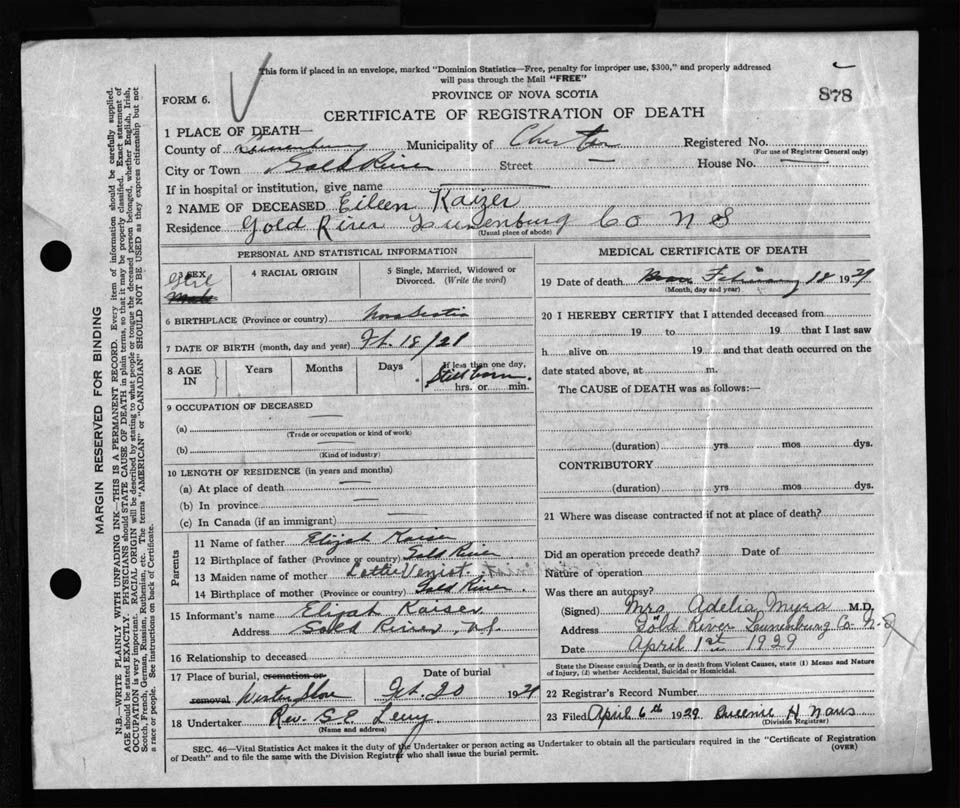 This form if placed in an envelope, marked "Dominion Statistics—Free, penalty for improper use, $300," and properly addressed
will pass through the Mail "FREE"
878
FORM 6.
PROVINCE OF NOVA SCOTIA
CERTIFICATE OF REGISTRATION OF DEATH
1 PLACE OF DEATH—
County of Lunenburg Municipality of Chester Registered No.
(For use of Registrar General only)
City or Town Gold River Street — House No. —
If in hospital or institution, give name
2 NAME OF DECEASED Eileen Kaizer
Residence Gold River Lunenburg Co N S
(Usual place of abode)
PERSONAL AND STATISTICAL INFORMATION
3 SEX
Girl
Male
4 RACIAL ORIGIN
5 Single, Married, Widowed or
Divorced. (Write the word)
6 BIRTHPLACE (Province or country) Nova Scotia
7 DATE OF BIRTH (month, day and year)
8 AGE
IN
Years
Months
Days
If less than one day,
Still born
hrs. or min.
9 OCCUPATION OF DECEASED —
(a)
(Trade or occupation or kind of work)
(b)
(Kind of industry)
10 LENGTH OF RESIDENCE (in years and months)
(a) At place of death —
(b) In province —
(c) In Canada (if an immigrant) —
Parents
11 Name of father Elijah Kaiser
12 Birthplace of father (Province or country) Gold River
13 Maiden name of mother Lottie Veniot
14 Birthplace of mother (Province or country) Gold River
15 Informant's name Elijah Kaiser
Address Gold River, N.S.
16 Relationship to deceased
17 Place of burial, cremation or
removal Western Shore
Date of burial
Ft. 20 1929
18 Undertaker Rev. S.E. Levy
(Name and address)
MEDICAL CERTIFICATE OF DEATH
19 Date of death February 18 1929
(Month, day and year)
20 I HEREBY CERTIFY that I attended deceased from
19 to 19 that I last saw
h alive on 19 and that death occurred on the
date stated above, at m.
The CAUSE of DEATH was as follows:—
(duration) yrs mos dys.
CONTRIBUTORY
(duration) yrs mos dys.
21 Where was disease contracted if not at place of death?
Did an operation precede death? Date of
Nature of operation
Was there an autopsy?
(Signed) Mrs Adelia Myra M.D.
Address Gold River Lunenburg Co. N.S
Date April 1st 1929
State the Disease causing Death, or in death from Violent Causes, state (1) Means and Nature
of Injury, (2) whether Accidental, Suicidal or Homicidal.
22 Registrar's Record Number
23 Filed April 6th 1929 Queenie H Naus
(Division Registrar)
SEC. 46—Vital Statistics Act makes it the duty of the Undertaker or person acting as Undertaker to obtain all the particulars required in the "Certificate of Registration
of Death" and to file the same with the Division Registrar who shall issue the burial permit.
(OVER)
MARGIN RESERVED FOR BINDING
N.B.—WRITE PLAINLY WITH UNFADING INK—THIS IS A PERMANENT RECORD. Every item of information should be carefully supplied.
AGE should be stated EXACTLY. PHYSICIANS should STATE CAUSE OF DEATH in plain terms, so that it may be properly classified. Exact statement of
OCCUPATION is very important. RACIAL ORIGIN will be described by stating to what people or tongue the deceased person belonged, whether English, Irish,
Scotch, French, German, Russian, Ruthenian, etc. The terms "AMERICAN" or "CANADIAN" SHOULD NOT BE USED as they express citizenship but not
a race or people. See instructions on back of Certificate.